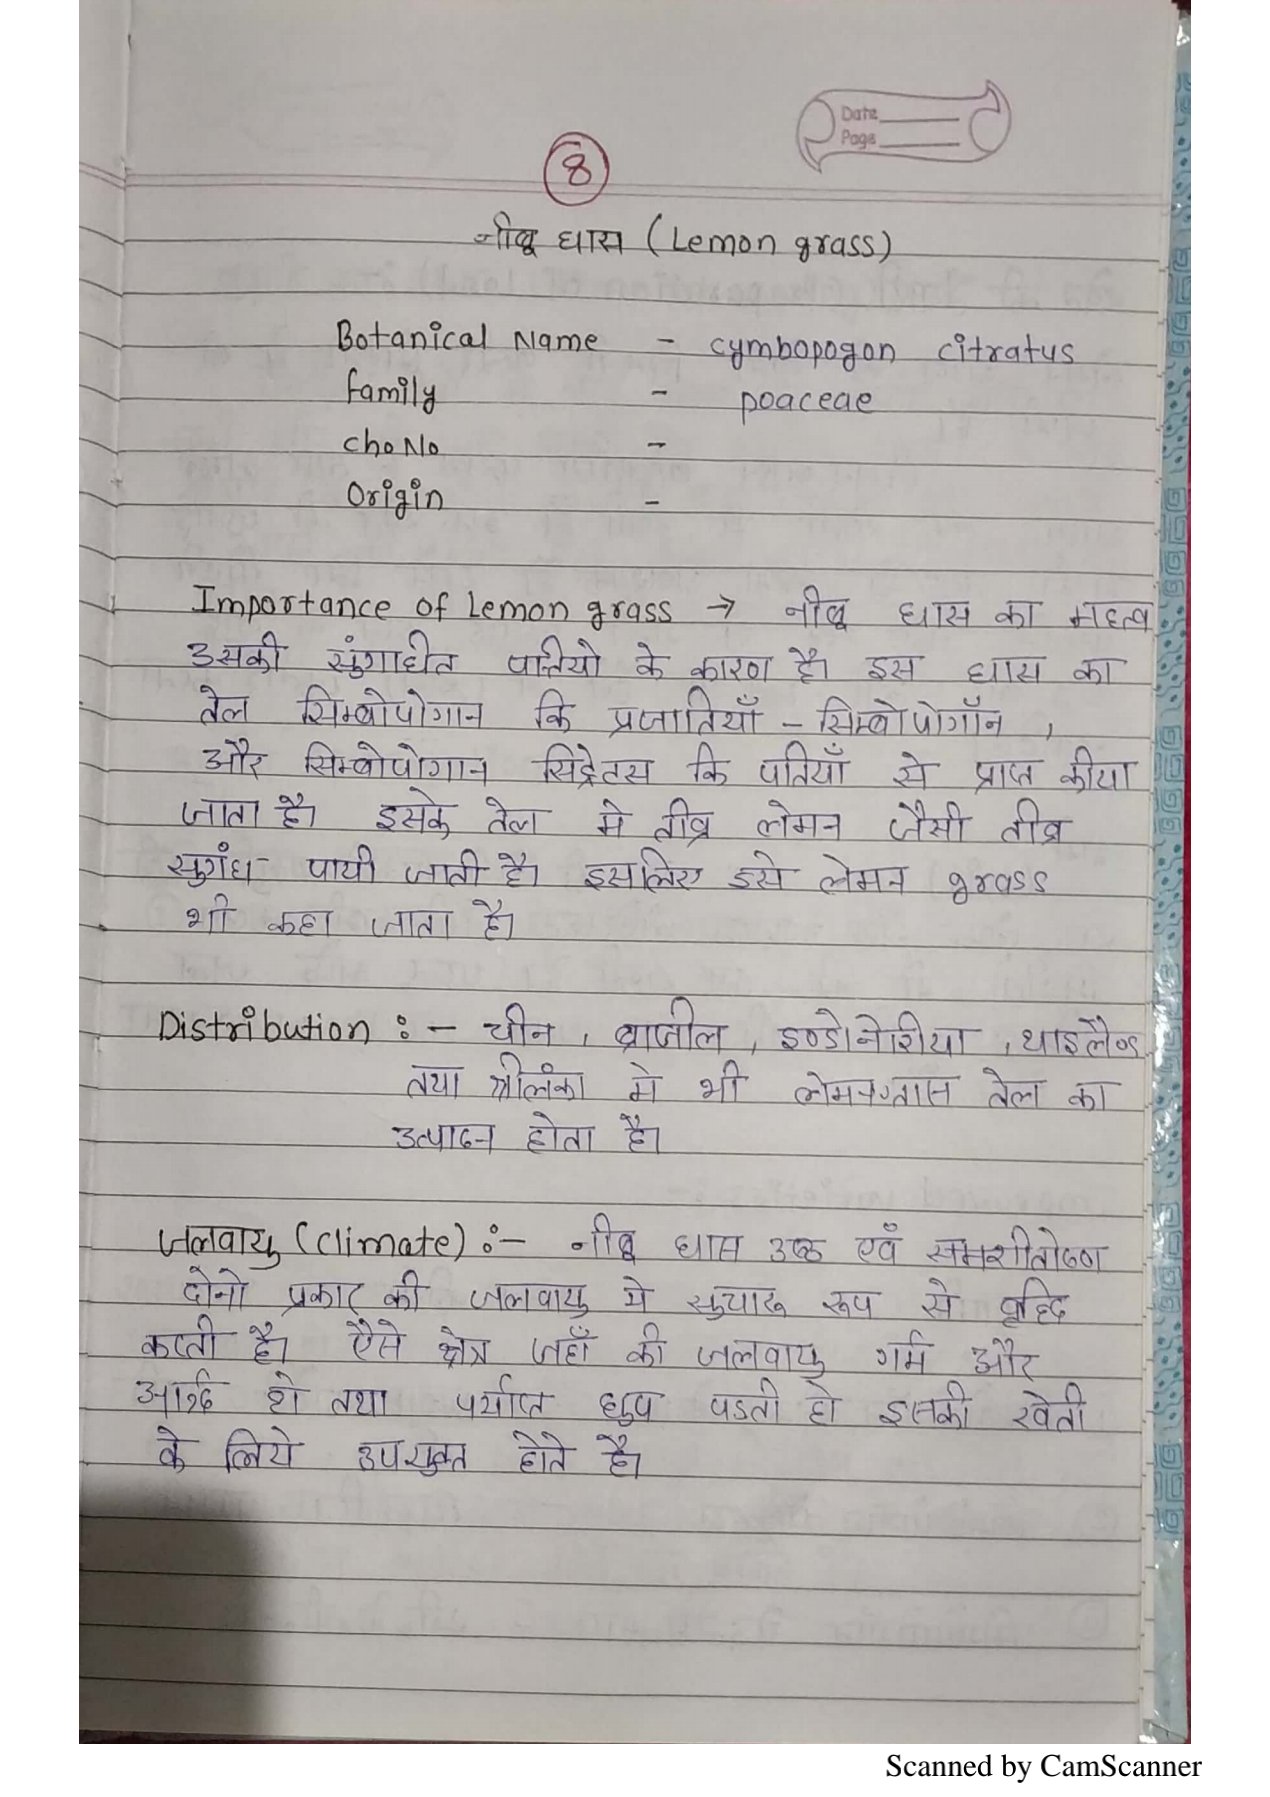 Date
Page
8
नीबू घास (Lemon grass)
Botanical Name - cymbopogon citratus
family - poaceae
choNo -
Origin -
Importance of Lemon grass → नीबू घास का महत्व
उसकी सुंगाधीत पातियो के कारण है। इस घास का
तेल सिम्बोपोगान कि प्रजातियाँ - सिम्बोपोगॉन ,
और सिम्बोपोगान सिट्रेतस कि पतियाँ से प्राप्त कीया
जाता है। इसके तेल मे तीव्र लेमन जैसी तीव्र
सुगंध पायी जाती है। इसलिए इसे लेमन grass
भी कहा जाता है।
Distribution :- चीन , ब्राजील , इण्डोनेशिया , थाइलैण्ड
तथा श्रीलंका मे भी लेमनग्रास तेल का
उत्पादन होता है।
जलवायु (climate) :- नीबू घास उष्ण एवँ समशीतोष्ण
दोनो प्रकार की जलवायु मे सुचारू रूप से वृद्दि
करती है। ऐसे क्षेत्र जहाँ की जलवायु गर्म और
आर्द्र हो तथा पर्याप्त धुप पडती हो इसकी खेती
के लिये उपयुक्त होते है।
Scanned by CamScanner